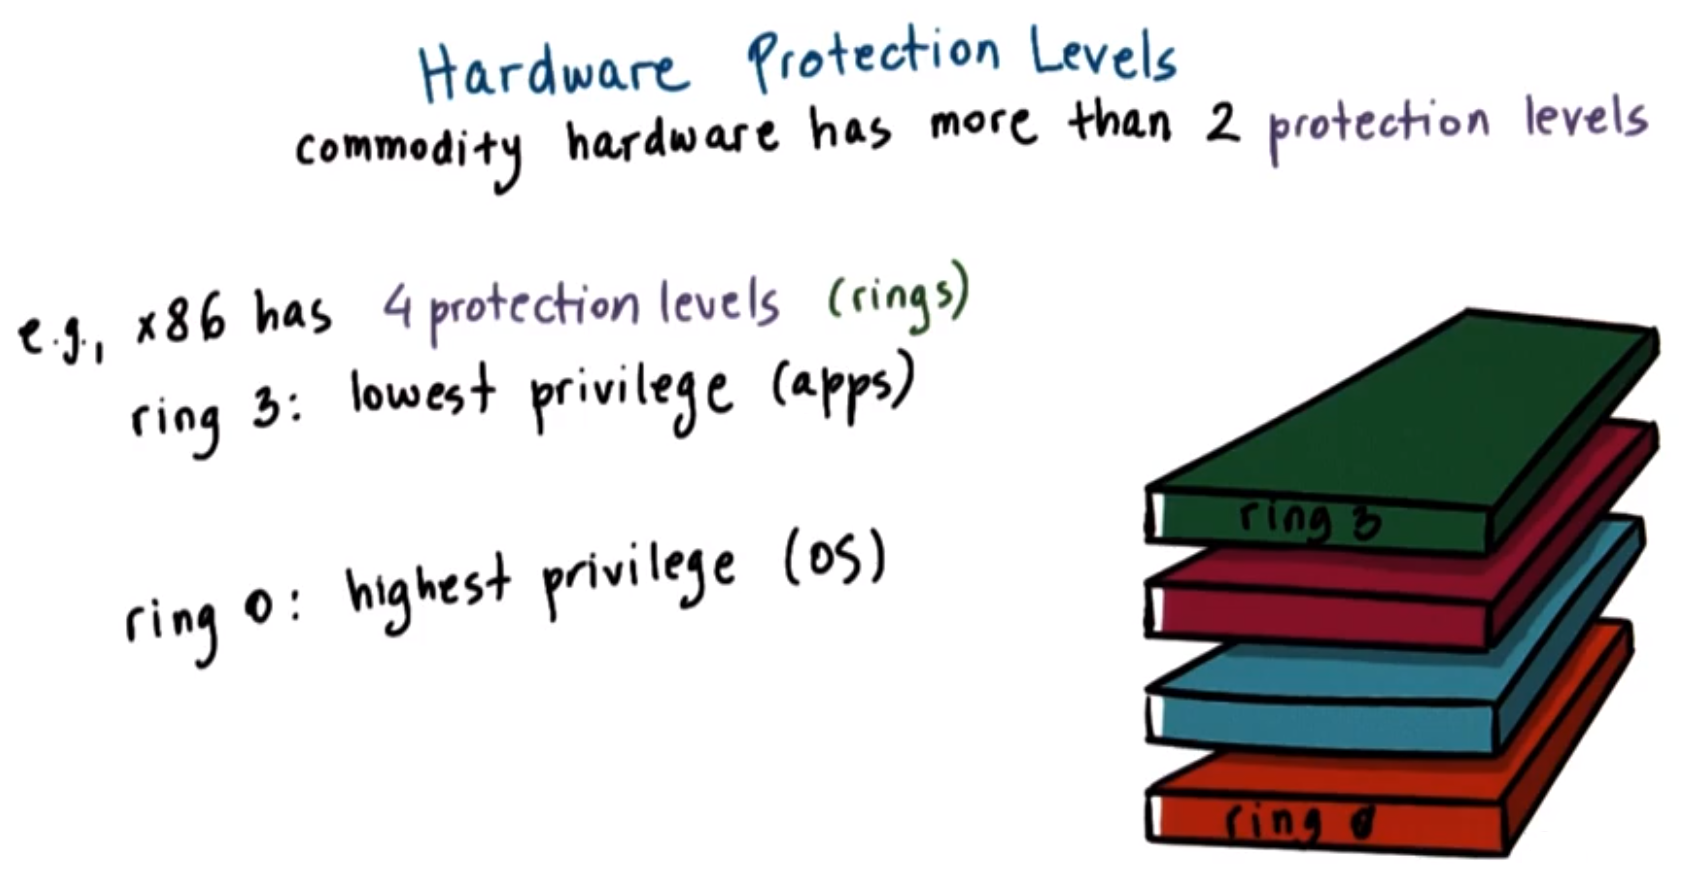 Hardware Protection Levels
commodity hardware has more than 2 protection levels
e.g., x86 has 4 protection levels (rings)
ring 3: lowest privilege (apps)
ring 0: highest privilege (OS)
ring 3
ring 0